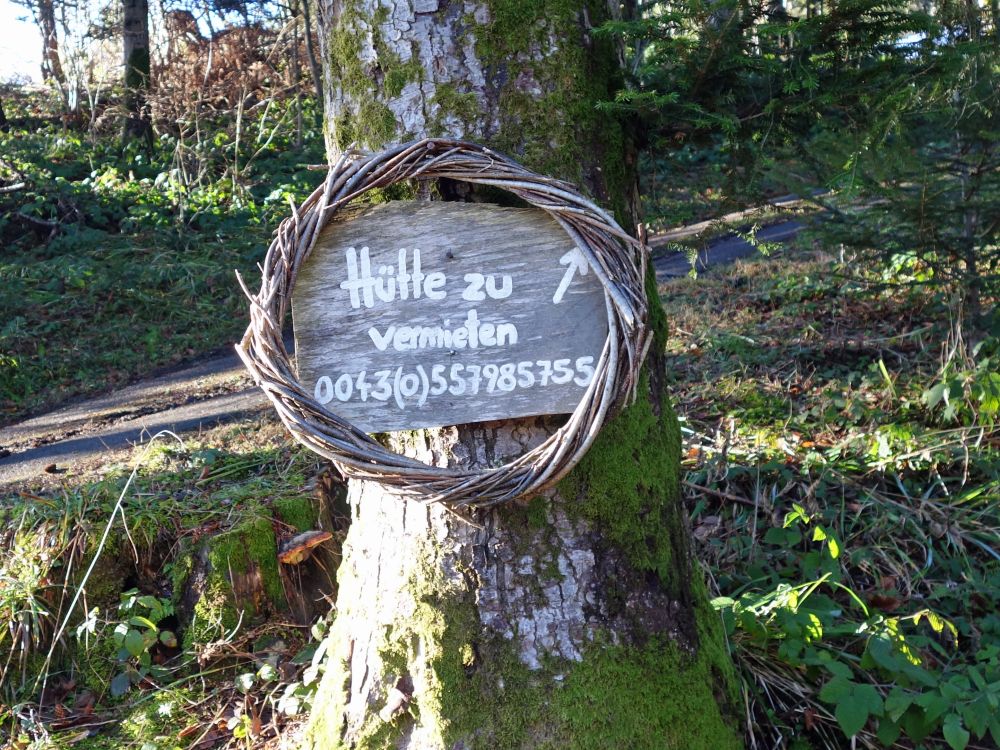 Hütte zu
vermieten
0043(0)557985755